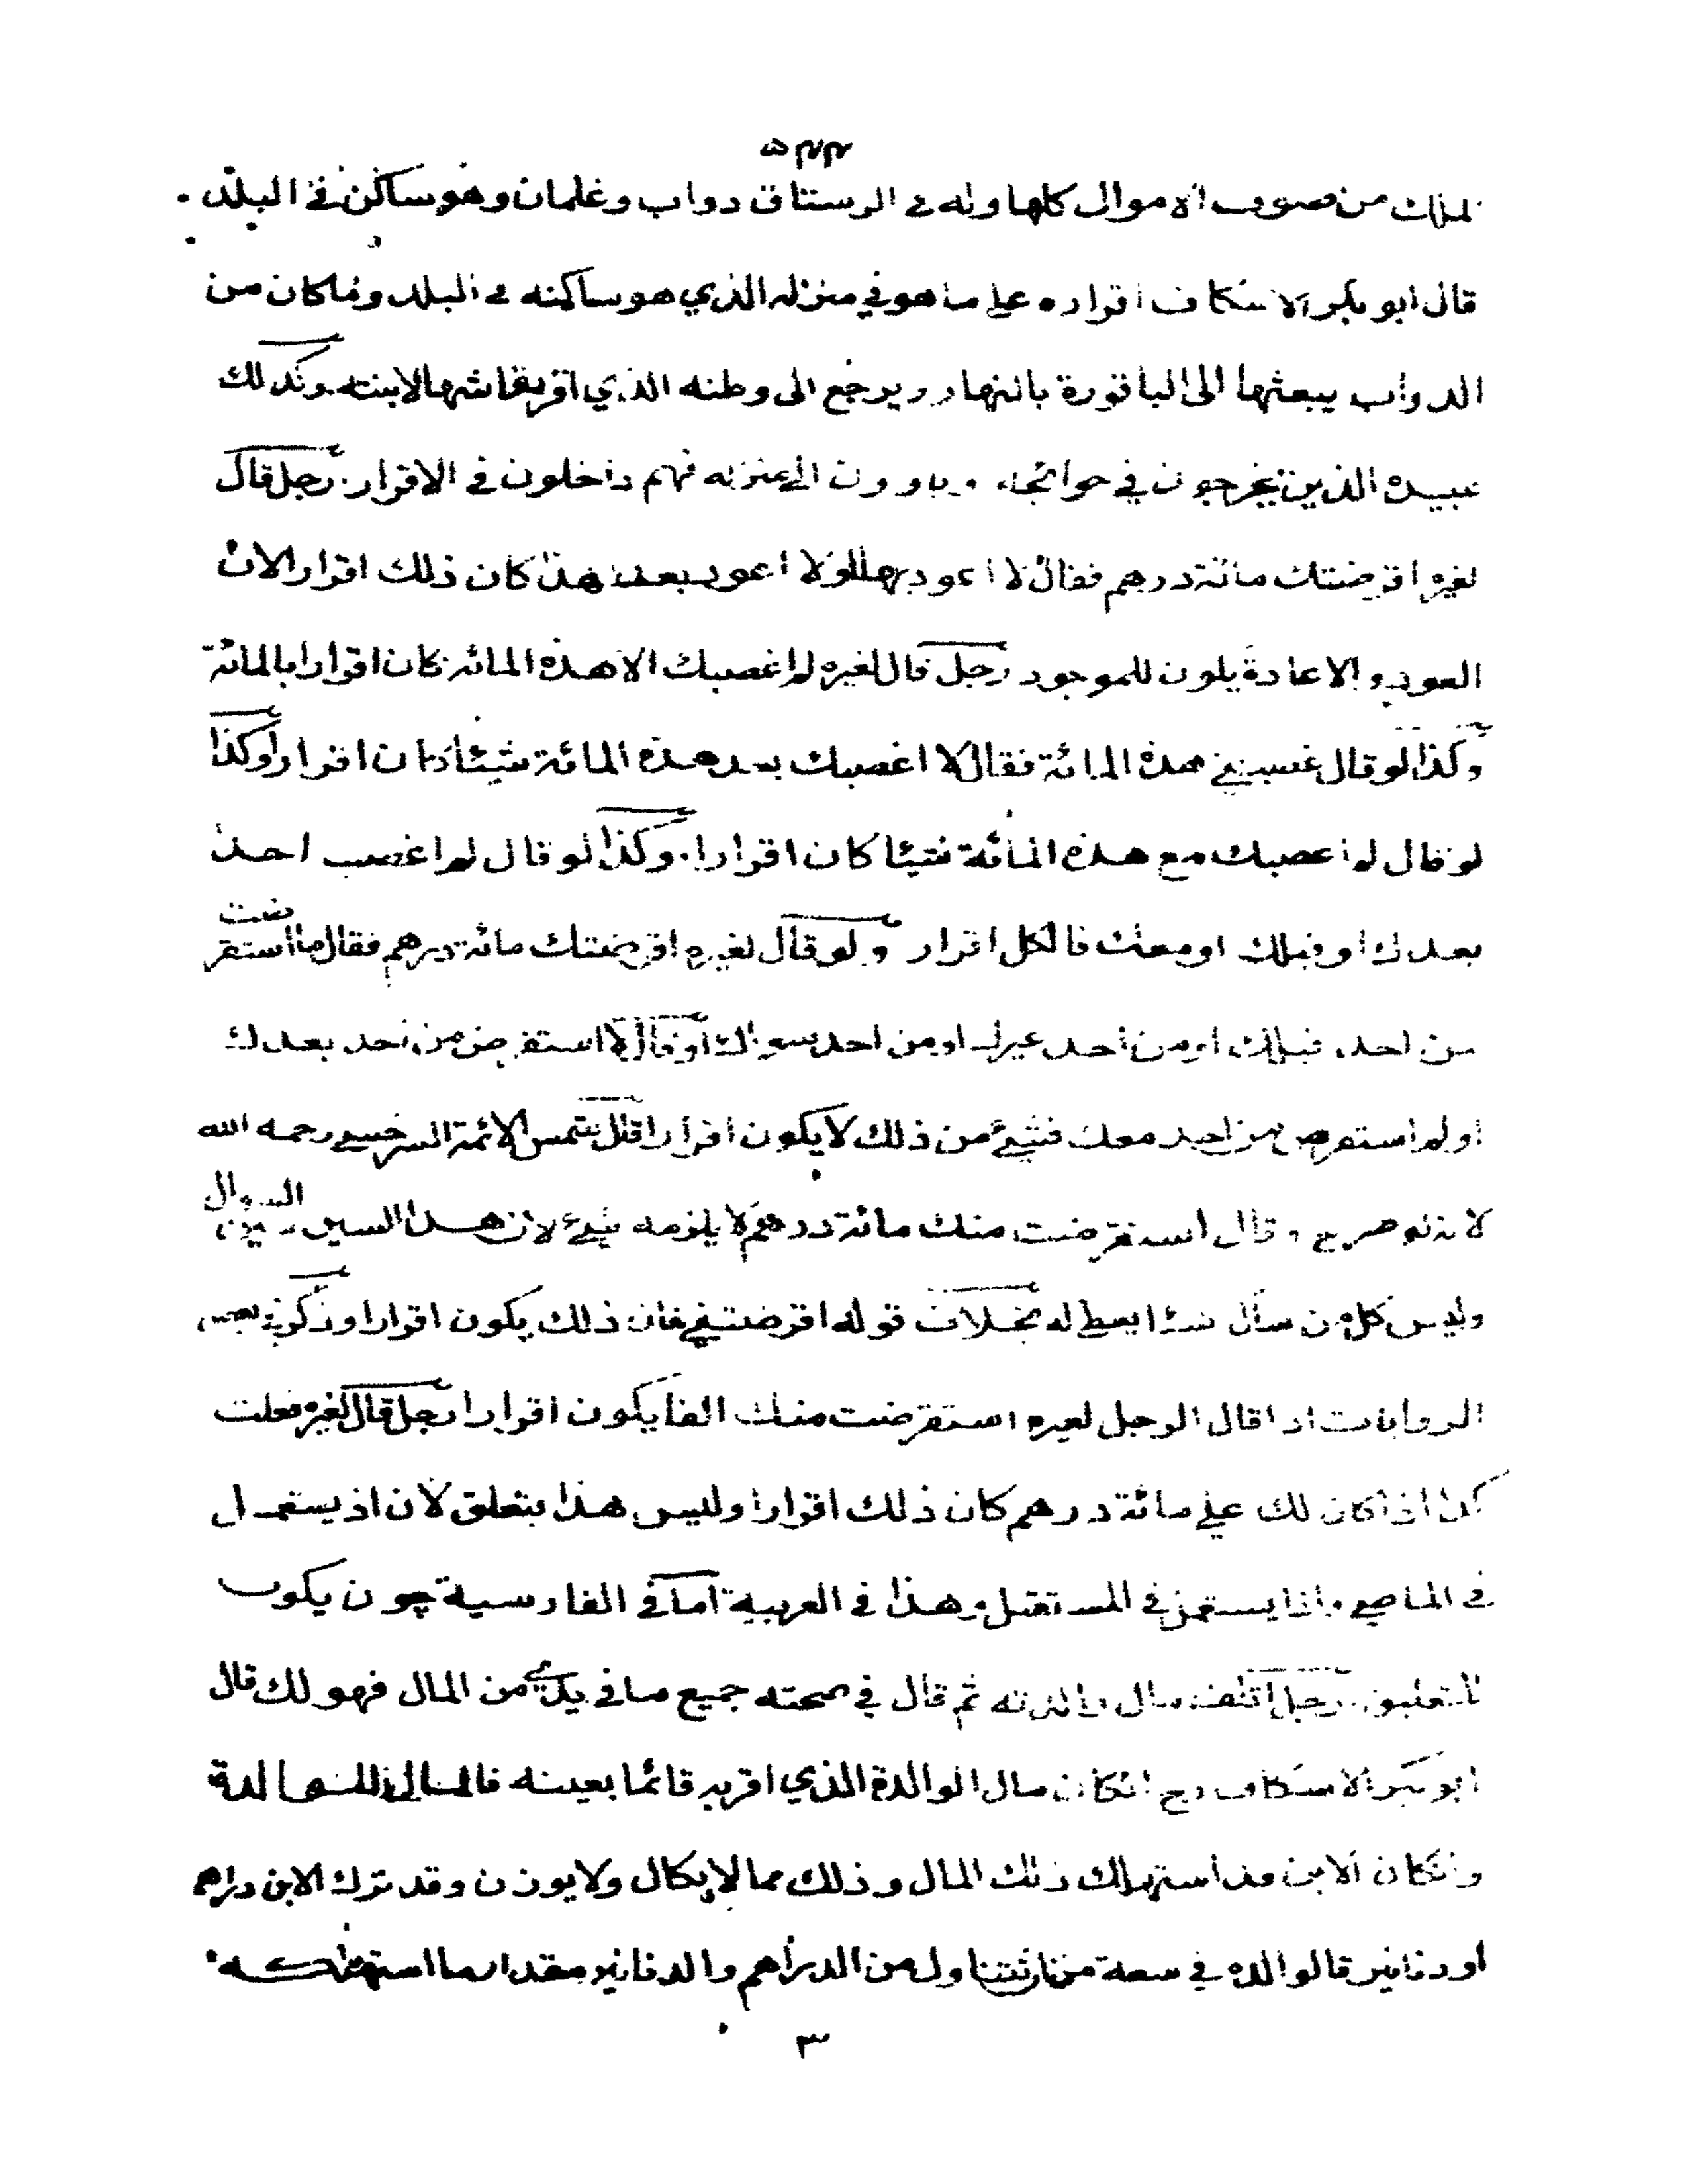 ۵۴۴
لملك من صنوف الاموال كلها وله في الرستاق دواب وغلمان وهو ساكن في البلد
قال ابو بكر الاسكاف اقراره على ما هو في منزله الذي هو ساكنه في البلد وما كان من
الدواب يبعثها الى الباقورة بالنهار ويرجع الى وطنه الذي اقر بقماشها لابنته وكذلك
عبيده الذين يخرجون في حوائجه وياوون الى منزله فهم داخلون في الاقرار رجل قال
لغيره اقرضتك مائة درهم فقال لا اعود بها ولا اعود بعد هذا كان ذلك اقرارا لان
العود والاعادة يكون للموجود رجل قال لغيره لم اغصبك الا هذه المائة كان اقرارا بالمائة
وكذا لو قال غصبتني هذه المائة فقال لا اغصبك بعد هذه المائة شيئا كان اقرارا وكذا
لو قال لم اغصبك مع هذه المائة شيئا كان اقرارا وكذا لو قال لم اغصب احدا
بعدك او قبلك او معك فالكل اقرار ولو قال لغيره اقرضتك مائة درهم فقال ما استقرضت
من احد قبلك او من احد غيرك او من احد سواك او قال لا استقرض من احد بعدك
او لم استقرض من احد معك فشيء من ذلك لا يكون اقرارا قال شمس الائمة السرخسي رحمه الله
لانه لو صرح وقال استقرضت منك مائة درهم لا يلزمه شيء لان هذا السين السوال
وليس كل من سأل شيئا يعطى له بخلاف قوله اقرضتني فان ذلك يكون اقرارا وذكر في بعض
الروايات اذا قال الرجل لغيره استقرضت منك الفا يكون اقرارا رجل قال لغيره فعلت
كذا اذ كان لك علي مائة درهم كان ذلك اقرارا وليس هذا بتعلق لان اذ يستعمل
في الماضي واذا يستعمل في المستقبل وهذا في العربية اما في الفارسية چون يكون
للتعليق رجل اتلف مال والدته ثم قال في صحته جميع ما في يدي من المال فهو لك قال
ابو بكر الاسكاف رح ان كان مال الوالدة الذي اقر به قائما بعينه فالمال للوالدة
وان كان الابن قد استهلك ذلك المال وذلك مما لا يكال ولا يوزن وقد ترك الابن دراهم
او دنانير فالوالدة في سعة من ان تتناول من الدراهم والدنانير مقدار ما استهلكه
٣